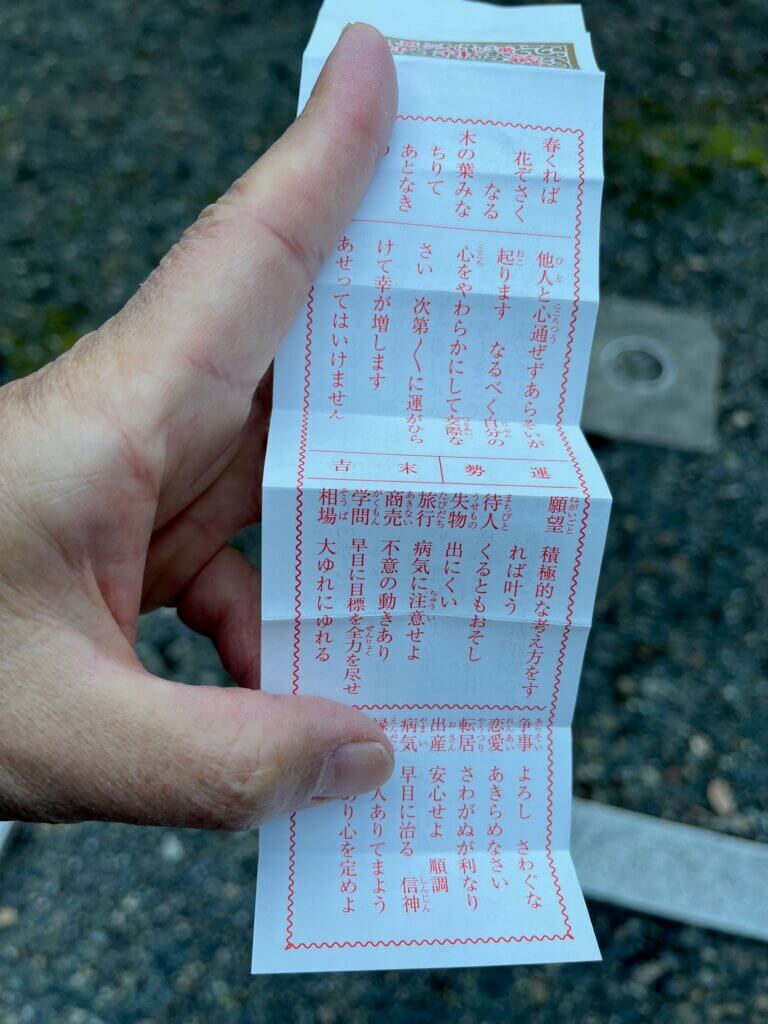 春くれば
花ぞさく
なる
木の葉みな
ちりて
あとなき
他人と心通ぜずあらそいが
起ります なるべく自分の
心をやわらかにして交際な
さい 次第〱に運がひら
けて幸が増します
あせってはいけません
運勢 末吉
願望 積極的な考え方をす
れば叶う
待人 くるともおそし
失物 出にくい
旅行 病気に注意せよ
商売 不意の動きあり
学問 早目に目標を全力を尽せ
相場 大ゆれにゆれる
争事 よろし さわぐな
恋愛 あきらめなさい
転居 さわがぬが利なり
出産 安心せよ 順調
病気 早目に治る 信神
人ありてまよう
り心を定めよ